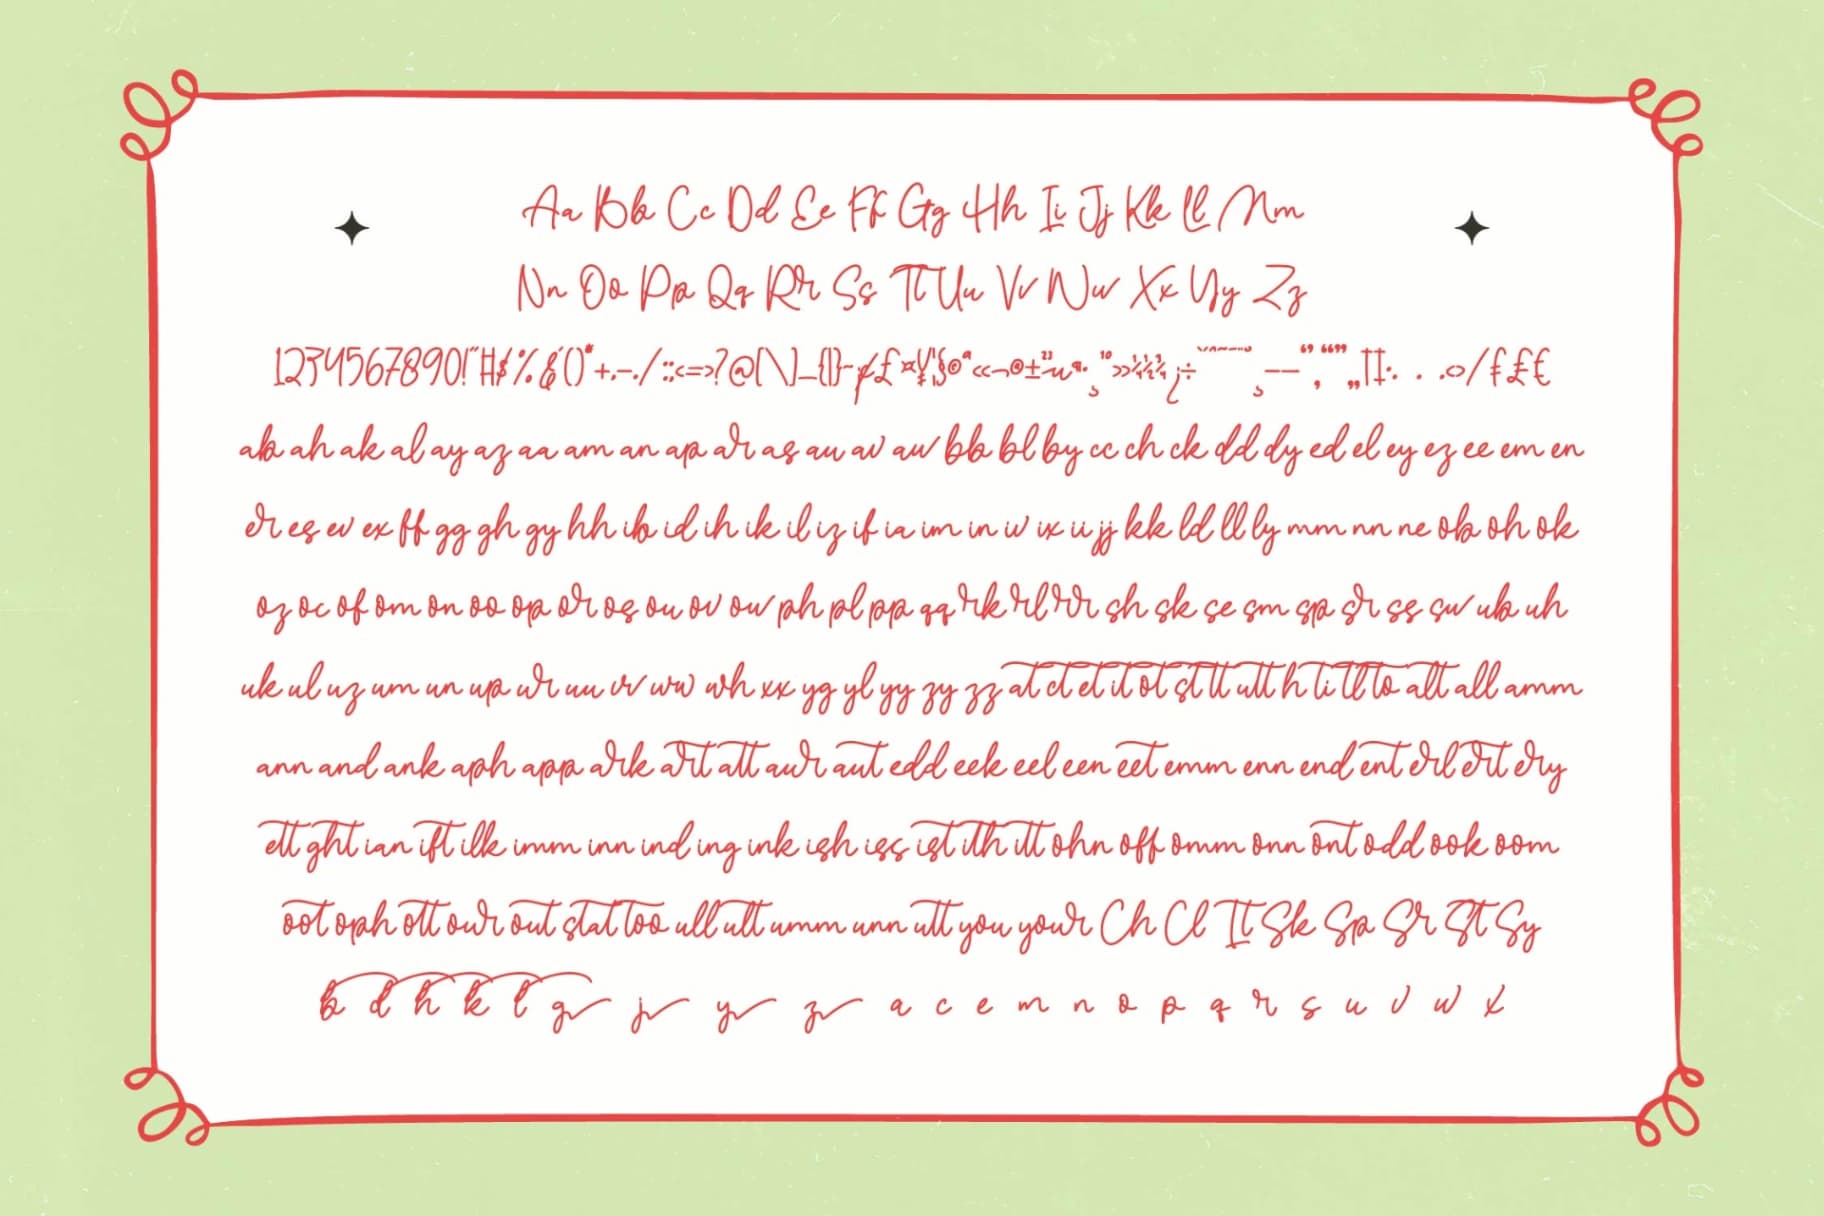 Aa Bb Cc Dd Ee Ff Gg Hh Ii Jj Kk Ll Mm
Nn Oo Pp Qq Rr Ss Tt Uu Vv Ww Xx Yy Zz
1234567890!"#$%&'()*+,-./:;<=>?@[\]_{|}~¢£¤¥¦§©ª«¬®±²³µ¶·¸¹º»¼½¾¿÷
ab ah ak al ay az aa am an ap ar as au av aw bb bl by cc ch ck dd dy ed el ey ez ee em en
er es ev ex ff gg gh gy hh ib id ih ik il iz if ia im in iv ix ii jj kk ld ll ly mm nn ne ob oh ok
oz oc of om on oo op or os ou ov ow ph pl pp qq rk rl rr sh sk se sm sp sr ss sw ub uh
uk ul uz um un up ur uu vv ww wh xx yg yl yy zy zz at ct et it ot st tt utt th ti tl to att all amm
ann and ank aph app ark art att aur aut edd eek eel een eet emm enn end ent erl ert ery
ett ght ian ift ilk imm inn ind ing ink ish iss ist ith itt ohn off omm onn ont odd ook oom
oot oph ott our out stat too ull ult umm unn utt you your Ch Cl It Sk Sp Sr St Sy
b d h k l g j y z a c e m n o p q r s u v w x